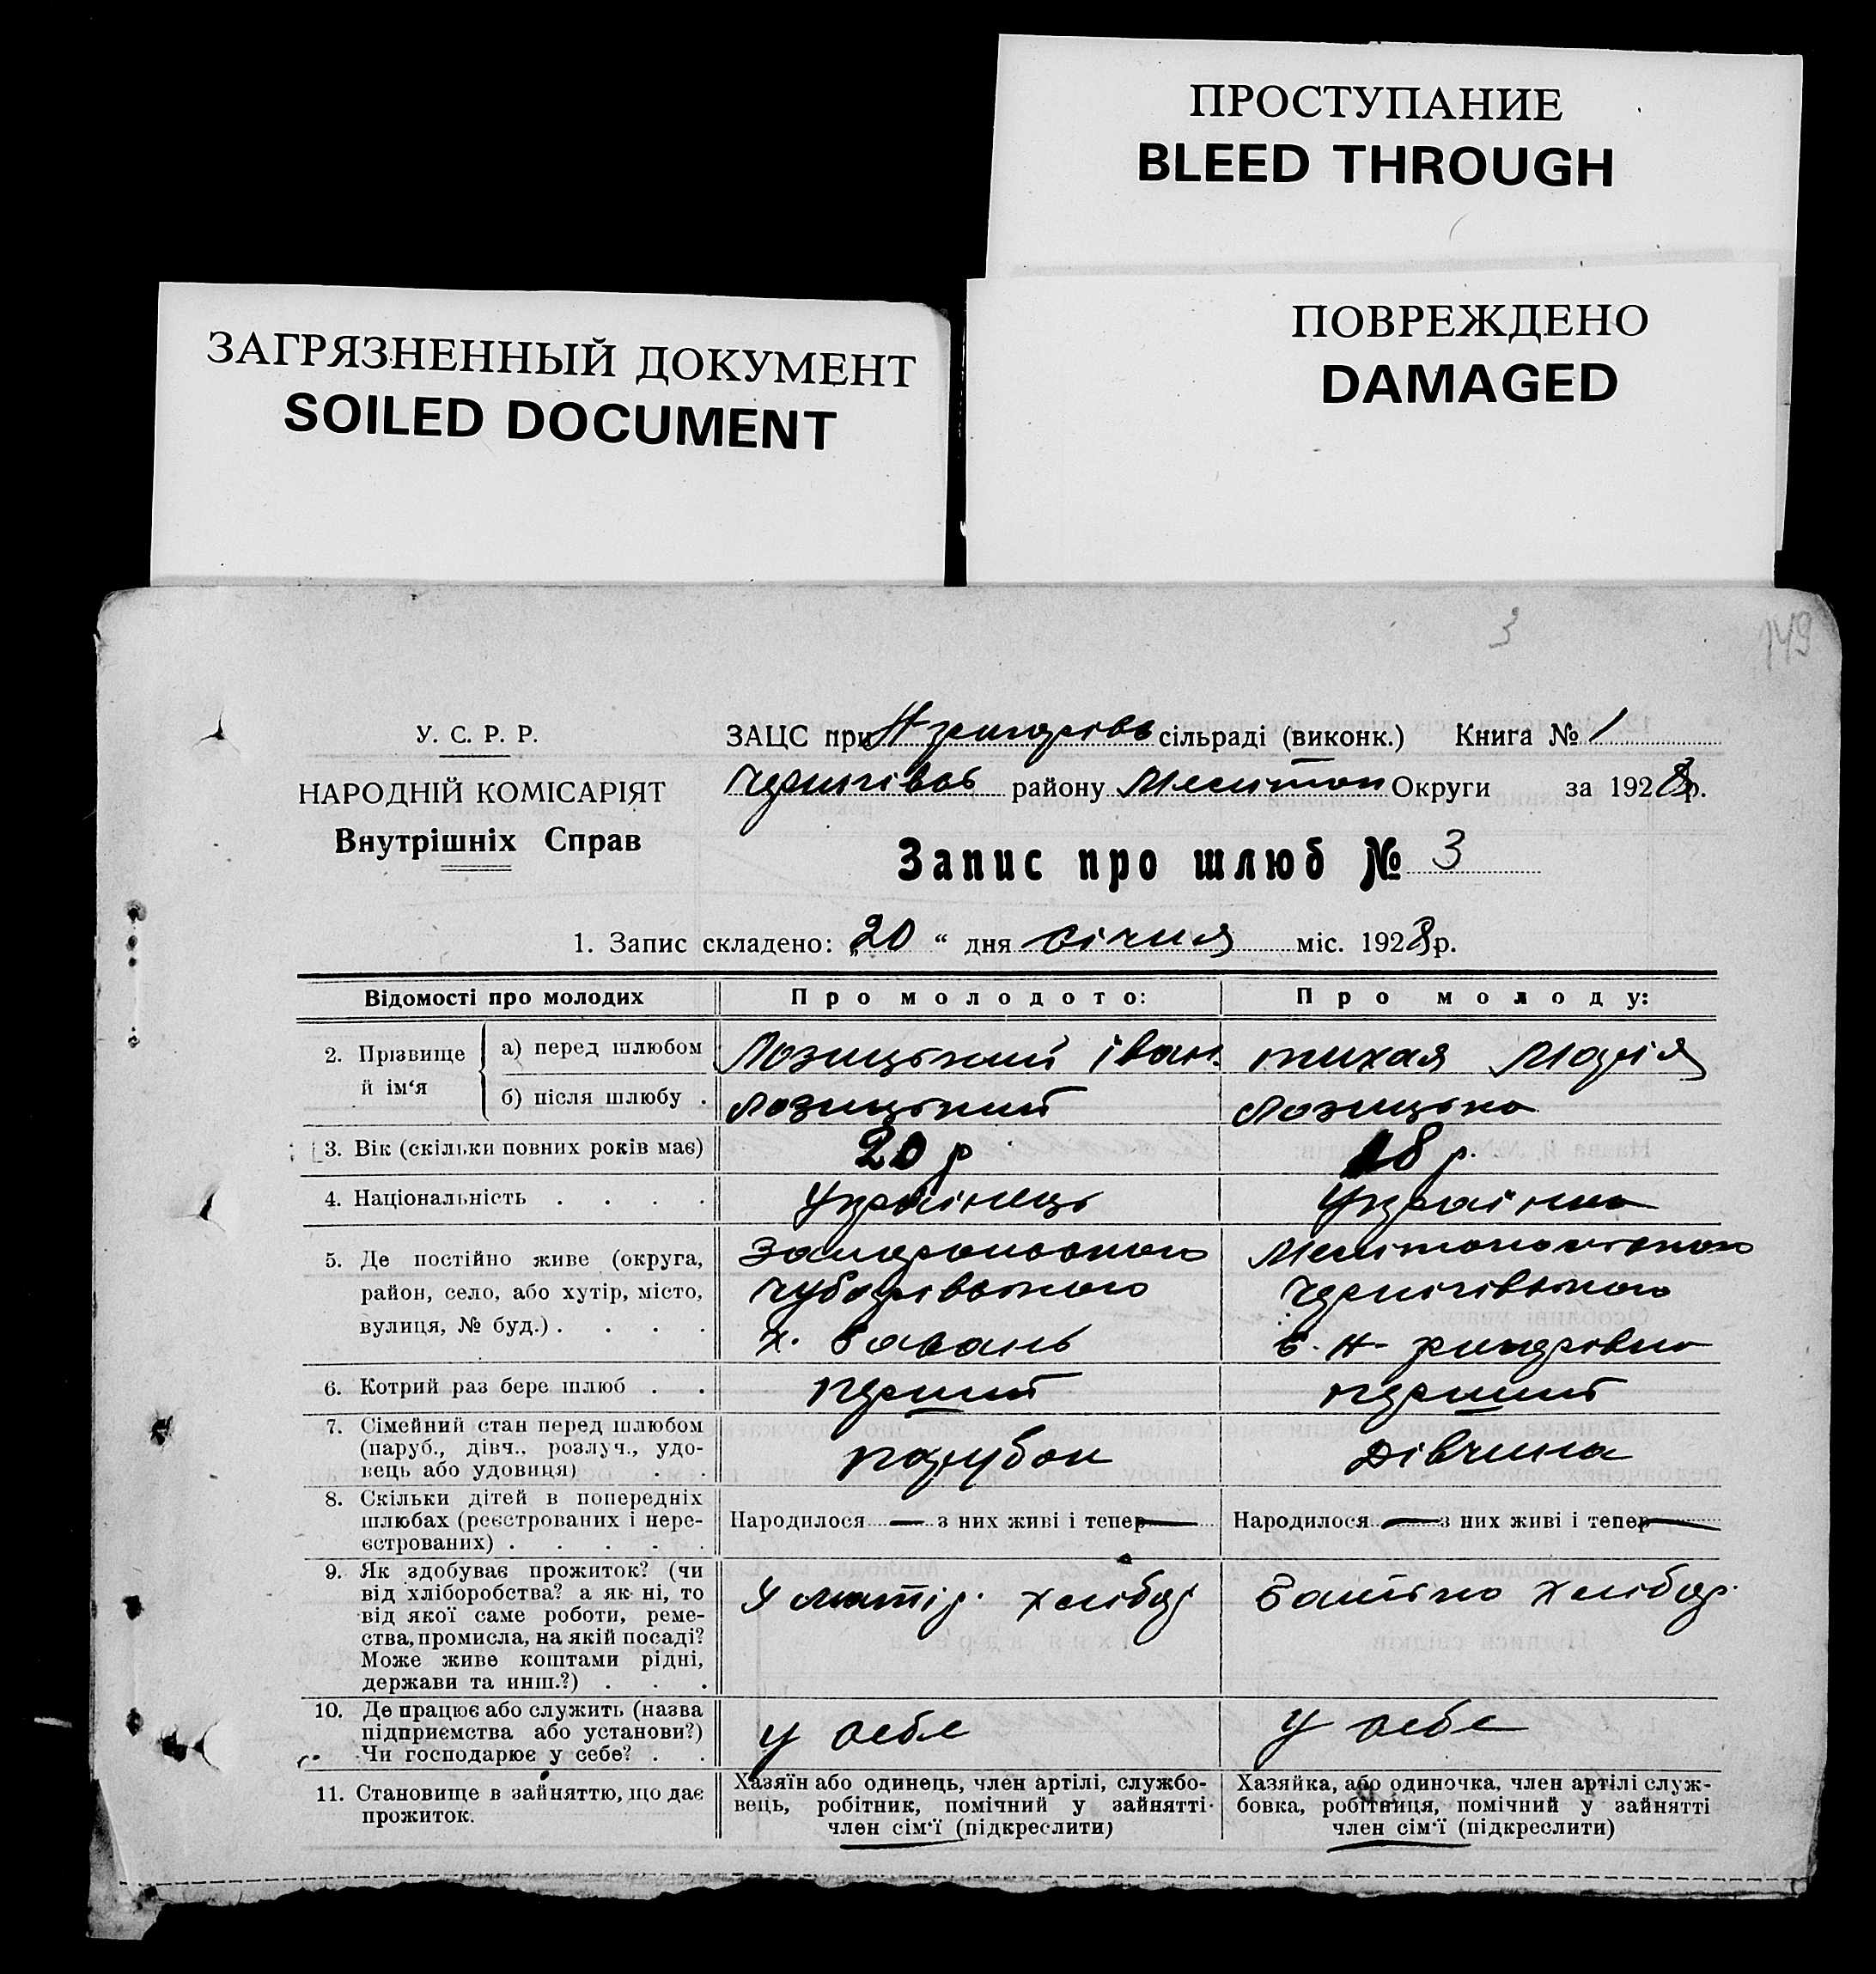 ПРОСТУПАНИЕ
BLEED THROUGH
ЗАГРЯЗНЕННЫЙ ДОКУМЕНТ
SOILED DOCUMENT
ПОВРЕЖДЕНО
DAMAGED
3
149
У. С. Р. Р.
НАРОДНІЙ КОМІСАРІЯТ
Внутрішніх Справ
ЗАЦС при сільраді (виконк.) Книга № 1
району Мелитоп Округи за 1928 р.
Запис про шлюб № 3
1. Запис складено: „20“ дня січня міс. 1928 р.
Відомості про молодих Про молодого: Про молоду:
2. Прізвище й ім‘я
а) перед шлюбом Лозицький Іван тихая Марія
б) після шлюбу . Лозицький Лозицька
3. Вік (скільки повних років має) 20 р 18 р.
4. Національність . . . . Українець Українка
5. Де постійно живе (округа,
район, село, або хутір, місто,
вулиця, № буд.) . . . .
Чубарівського
Мелитопольського
Чернігівського
6. Котрий раз бере шлюб . . перший перший
7. Сімейний стан перед шлюбом
(паруб., дівч., розлуч., удо-
вець або удовиця) . .
парубок дівчина
8. Скільки дітей в попередніх
шлюбах (реєстрованих і нере-
єстрованих) . . . . .
Народилося — з них живі і тепер — Народилося — з них живі і тепер —
9. Як здобуває прожиток? (чи
від хліборобства? а як ні, то
від якої саме роботи, реме-
ства, промисла, на якій посаді?
Може живе коштами рідні,
держави та инш.?) . . .
У матір. хлібор Батько хлібор.
10. Де працює або служить (назва
підприємства або установи?)
Чи господарює у себе? . .
у себе у себе
11. Становище в зайняттю, що дає
прожиток.
Хазяїн або одинець, член артілі, службо-
вець, робітник, помічний у зайнятті
член сім‘ї (підкреслити)
Хазяйка, або одиночка, член артілі служ-
бовка, робітниця, помічний у зайнятті
член сім‘ї (підкреслити)